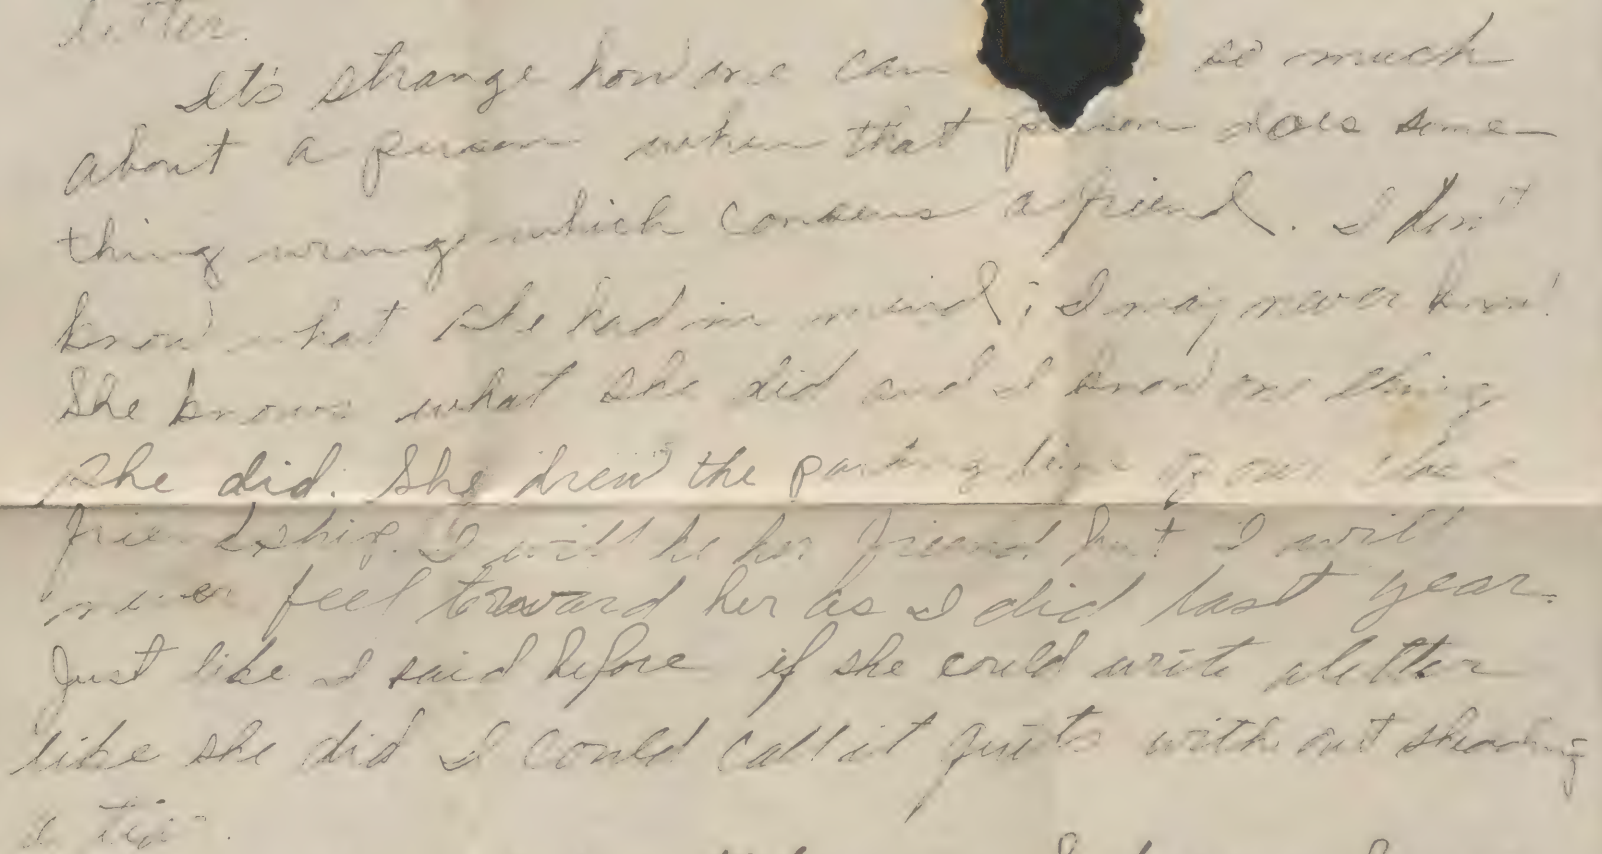 letter.
It's strange how one can so much
about a person when that person does some-
thing wrong which conserns a friend. I don't
know what she had in mind; I may never know!
She knows what she did and I know one thing
she did. She drew the parting line of our close
friendship. I will be her friend but I will
never feel toward her as I did last year.
Just like I said before if she could write a letter
like she did I could call it quits with out sheading
a tear.